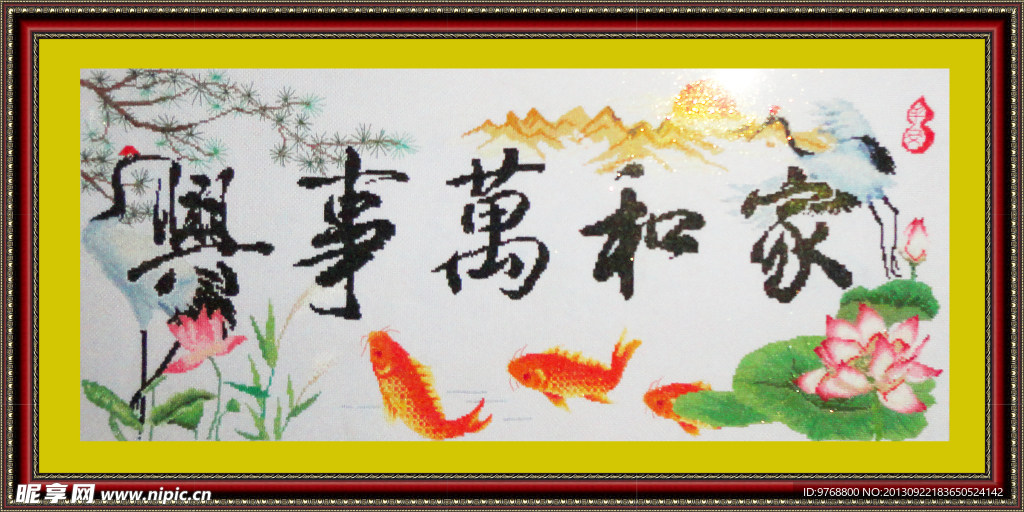 家和萬事興
昵享网 www.nipic.cn
ID:9768800 NO:20130922183650524142